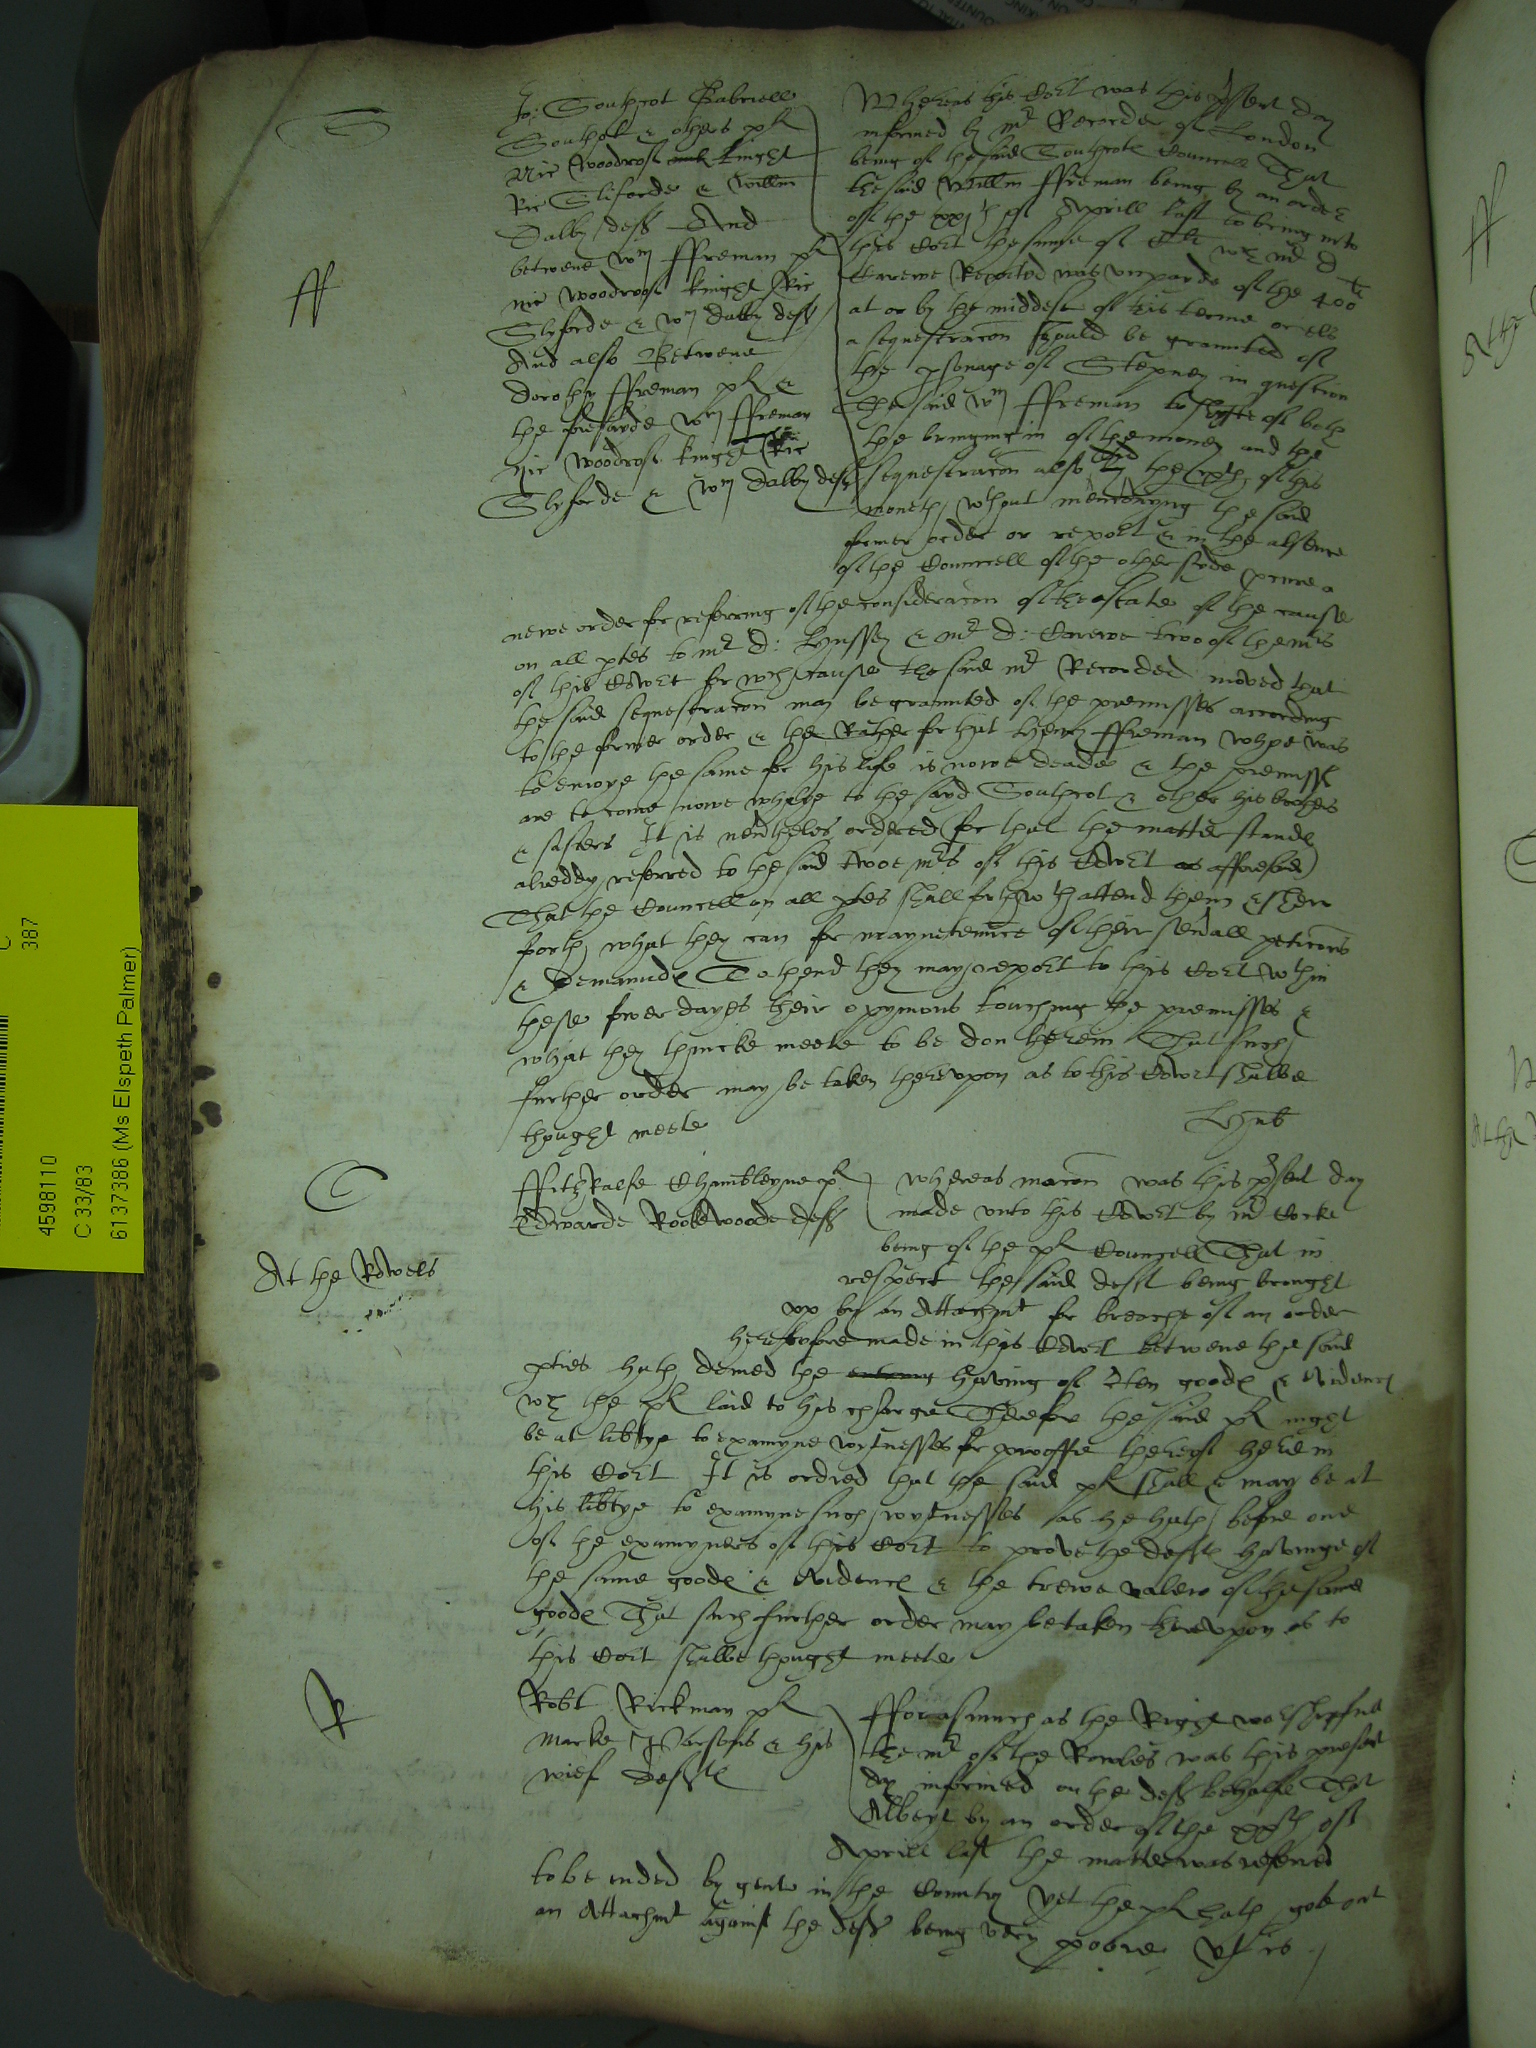 Jo: Southcot Gabriell
Southcot & others pl
Nic Woodrof knight
Ric Sliforde & Willm
Dalby deff And
betwene Wm ffreman pl
nic woodroof knight Ric
Slyforde & Wm Dalby deff
And also Betwene
Dorothy ffreman pl &
the foresayde Wm ffreman
nic Woodrof knight Ric
Slyforde & Wm Dalby deff
Whereas this Cort was this psent day
informed by mr Recorder of London
being of the said Southcote Councell That
the said Willm ffreman being by an order
of the xxjth of Aprill last to bring into
this Cort the sume of wch mr D
Carewe Reported was unpayde of the 400li
at or by the middest of this terme or els
a sequestracon should be graunted of
the psonage of Stepney in question
The said Wm ffreman of both
the bringing in of the money and the
sequestracon also the xth of this
moneth wthout menconyng the said
former order or report & in the absence
of the Councell of the other syde pcure a
newe order for referring of the consideracon of the state of the cause
on all ptes to mr D: Hussey & mr D: Carewe two of the mrs
of this Cowrt for wch cause the said mr Recorder moved that
the said sequestracon may be graunted of the premisses according
to the former order & the Rather for that Henry ffreman whoe was
to enioye the same for his life is nowe deade & the premiss
are to come nowe wholye to the sayd Southcot & other his brothers
& sisters It is nevertheles ordered (for that the matter stande
alreddy referred to the said twoe mrs of this Cowrt as afforesaid)
That the Councell on all ptes shall forthwth attend them & shew
forth what they can for mayntenance of their severall peticons
& Demaunde To thend they may report to this Cort wthin
these fower dayes their opynyons touching the premisses &
what they thincke meete to be don herein That such
further order may be taken thereupon as to this Cowrt shalbe
thought meete
ffitzRalfe Chamberleyne pl
Edwarde Rookwoode deff
whereas mocon was this psent day
made unto this Cowrt by mr Cocke
being of the pl Councell That in
respect the said deft being brought
up by an Attachmt for breache of an order
heretofore made in this Cowrt betwene the said
pties hath denied the having of Cten goode & evidence
wch the pl laid to his charge Therefore the said pl might
be at libtye to examyne wytnesses for prooffe thereof here in
this Cort It is ordred that the said pl shall & may be at
his libtye to examyne such wytnesses as he hath before one
of the examyners of this Cort to prove the defte havinge of
the same goode & evidence & the trewe valew of the same
goode That such further order may be taken thereupon as to
this Cort shalbe thought meete
At the Rowels
Robt Rickman pl
Marke Parsons & his
wief defte
fforasmuch as the Right worshipfull
the mr of the Rowles was this present
day informed on the deff behalfe That
Albeyt by an order of the xxth of
Aprill last the matter was referred
to be ended by gent in the Country Yet the pl hath gote out
an Attachmt against the deff being very poore
4598110
C 33/83
6137386 (Ms Elspeth Palmer)
C
387